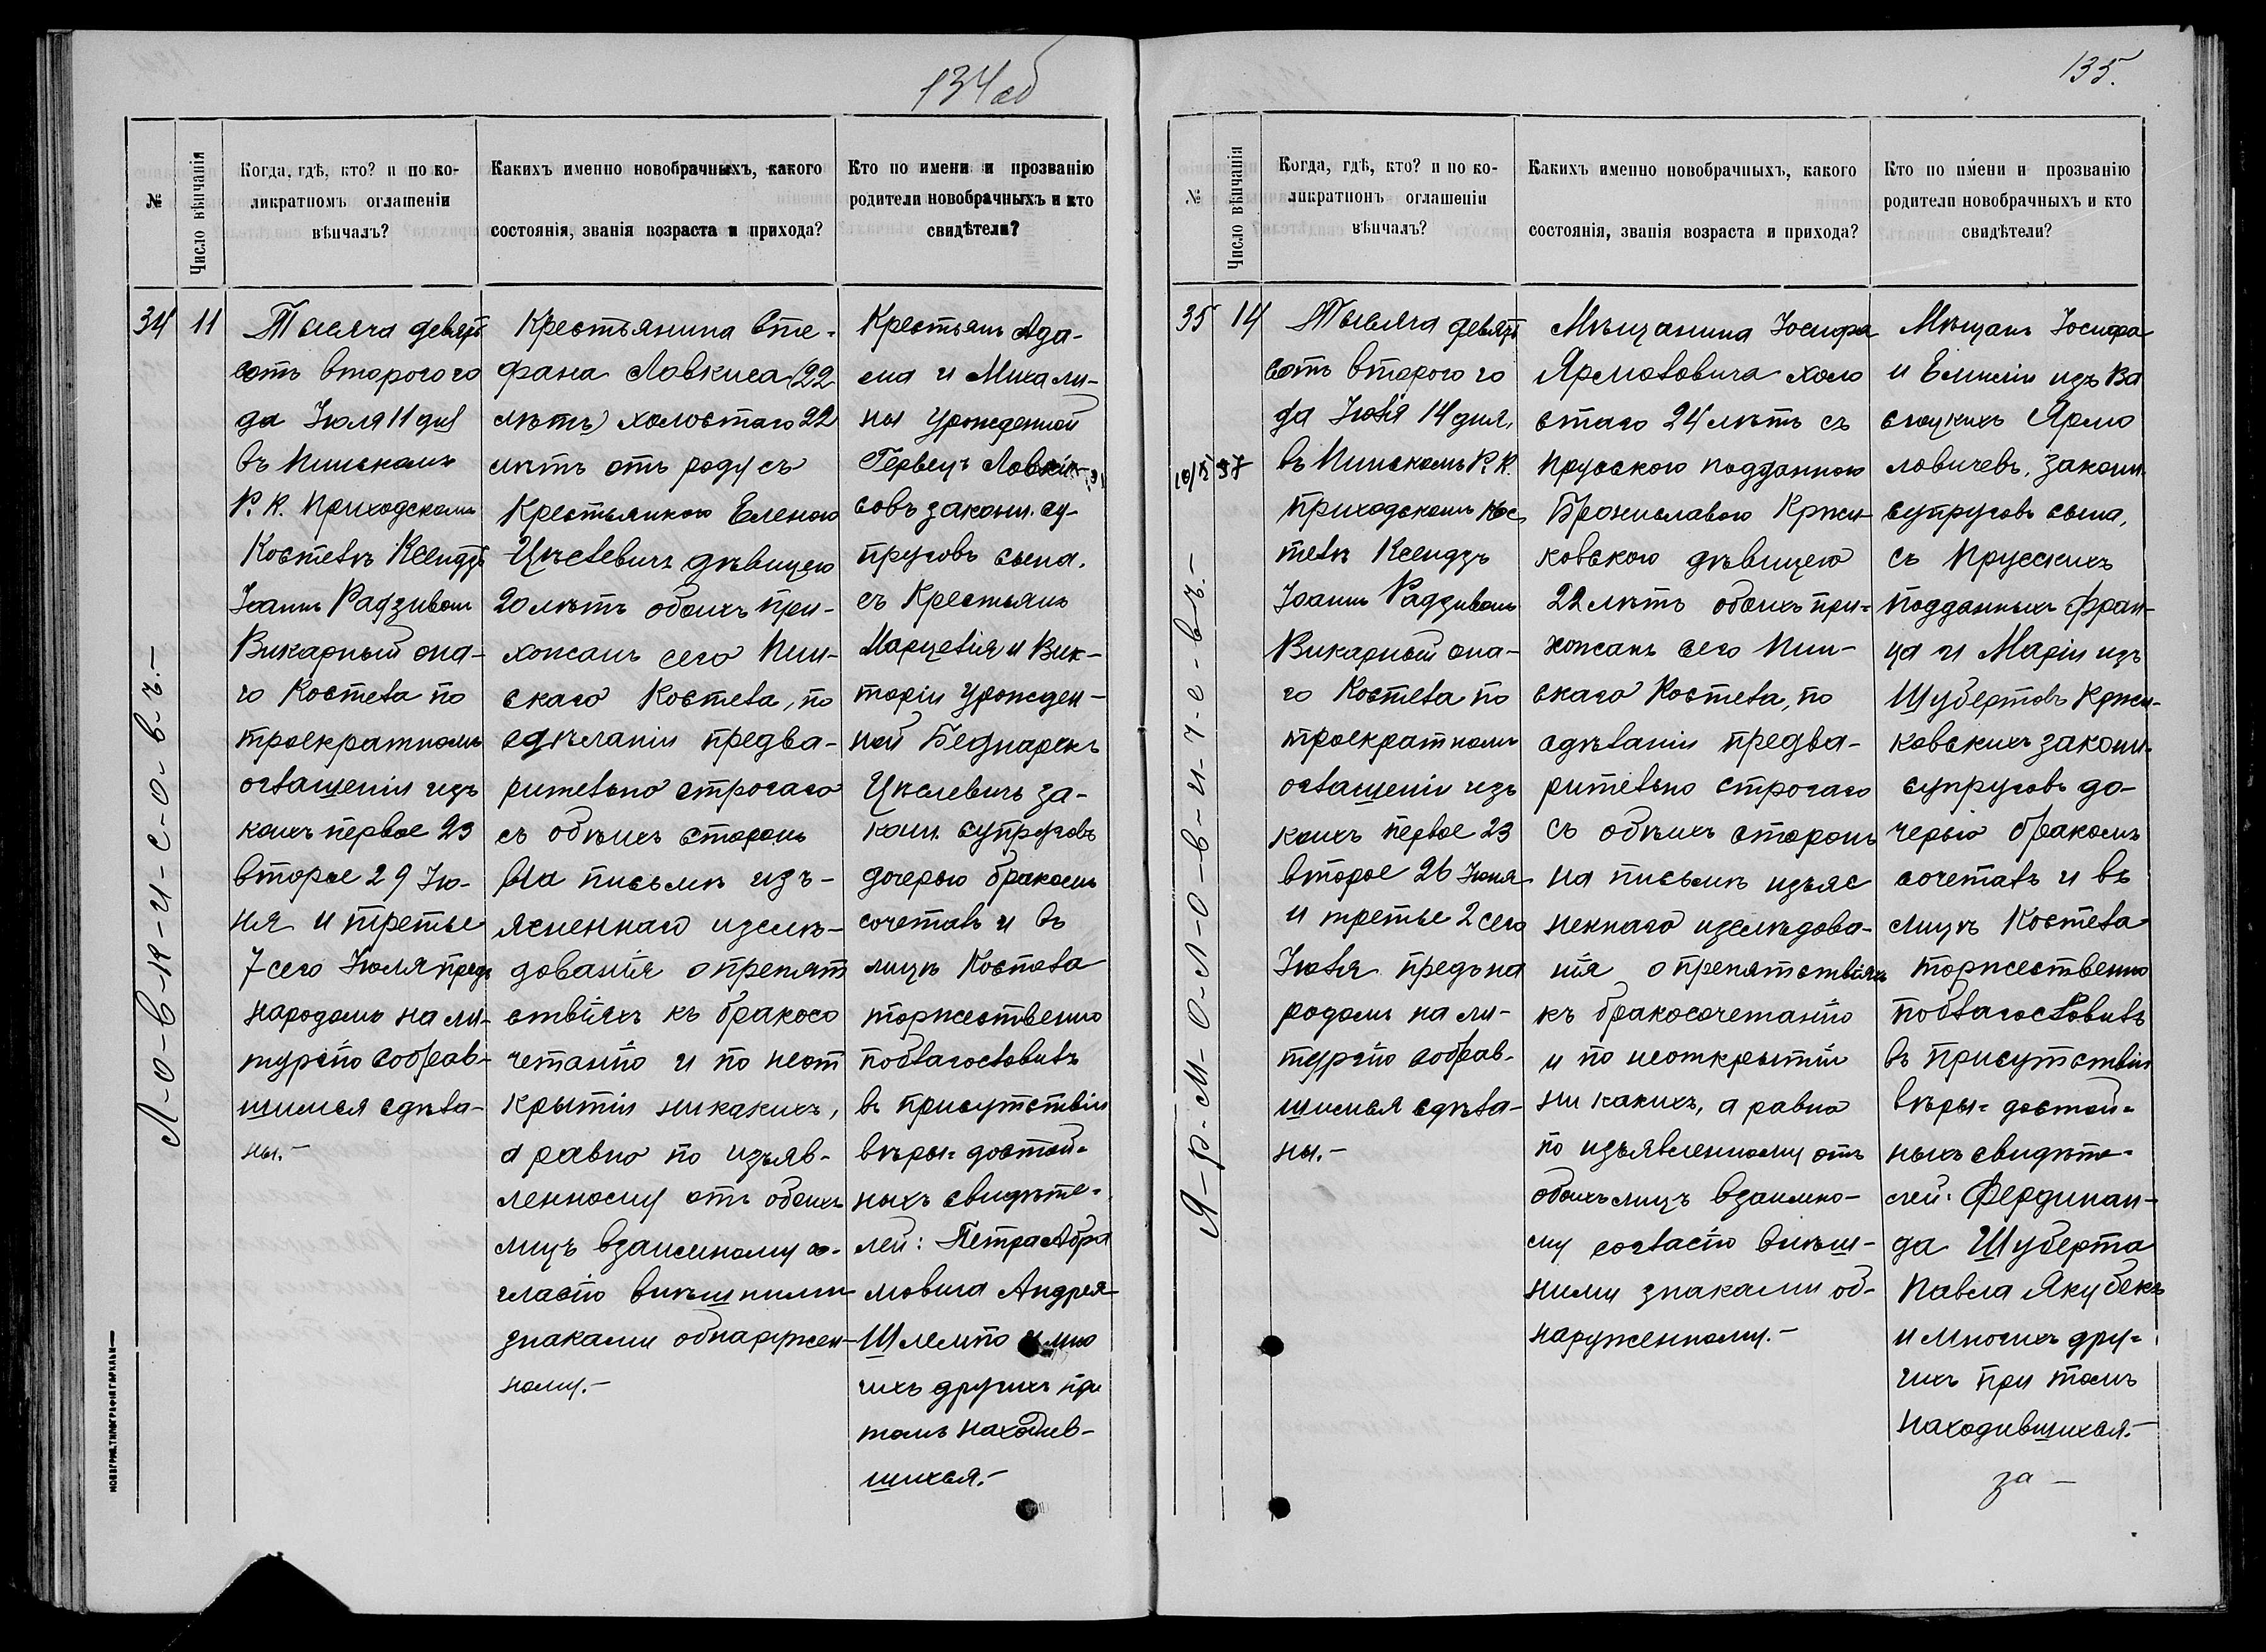 134 об
№
Число вѣнчанія
Когда, гдѣ, кто? и по ко-
ликратномъ оглашеніи
вѣнчалъ?
Какихъ именно новобрачныхъ, какого
состоянія, званія возраста и прихода?
Кто по имени и прозванію
родители новобрачныхъ и кто
свидѣтели?
34
11
Л-о-в-к-и-с-о-в-ъ.-
Тысяча девять
сотъ второго го
да Іюля 11 дня
въ Пинскомъ
Р. К. Приходскомъ
Костелѣ Ксендзъ
Іоаннъ Радзивон
Викарный она-
го Костела по
троекратномъ
оглашеніи изъ
коихъ первое 23
второе 29 Ію-
ня и третье
7 сего Іюля предъ
народомъ на ли-
тургію собрав-
шимся сдѣла-
ны.-
Крестьянина Сте-
фана Ловкиса (22
лѣтъ) холостаго 22
лѣтъ отъ роду съ
Крестьянкою Еленою
Цѣслевичъ дѣвицею
20 лѣтъ обоихъ при-
хожанъ сего Пин-
скаго Костела, по
сдѣланіи предва-
рительно строгаго
съ обѣихъ сторонъ
на письмѣ изъ-
ясненнаго изслѣ-
дованія о препят
ствіяхъ къ бракосо
четанію и по неот
крытіи никакихъ,
а равно по изъяв-
ленному отъ обоихъ
лицъ взаимному со-
гласію внѣшними
знаками обнаружен-
ному.-
Крестьянъ Ада-
ма и Михали-
ны урожденной
Гервецъ Ловки-
совъ законн. су-
пруговъ сына,
съ Крестьянъ
Марцелія и Вик-
торіи урожден-
ной Беднарекъ
Цѣслевичъ за-
конн. супруговъ
дочерью бракомъ
сочеталъ и въ
лицѣ Костела
торжественно
поблагословилъ
въ присутствіи
вѣры-достой-
ныхъ свидѣте-
лей: Петра Абра
мовича Андрея
Шлемпо и мно
гихъ другихъ при
томъ находив-
шихся.-
НОВОГРАД. ТИПОГРАФІЯ ГАРКАВИ
135.
№
Число вѣнчанія
Когда, гдѣ, кто? и по ко-
ликратномъ оглашеніи
вѣнчалъ?
Какихъ именно новобрачныхъ, какого
состоянія, званія возраста и прихода?
Кто по имени и прозванію
родители новобрачныхъ и кто
свидѣтели?
35
14
10/X 37
Я-р-м-о-л-о-в-и-ч-е-в-ъ.-
Тысяча девять
сотъ второго го
да Іюля 14 дня,
въ Пинскомъ Р. К.
приходскомъ Кос
телѣ Ксендзъ
Іоаннъ Радзивон
Викарный она-
го Костела по
троекратномъ
оглашеніи изъ
коихъ первое 23
второе 26 Іюня
и третье 2 сего
Іюля предъ на
родомъ на ли-
тургію собрав-
шимся сдѣла-
ны.-
Мѣщанина Іосифа
Ярмоловича холо
стаго 24 лѣтъ съ
прусскою подданною
Брониславою Кржи-
ковскою дѣвицею
22 лѣтъ обоихъ при-
хожанъ сего Пин-
скаго Костела, по
сдѣланіи предва-
рительно строгаго
съ обѣихъ сторонъ
на письмѣ изъяс
неннаго изслѣдова-
нія о препятствіяхъ
къ бракосочетанію
и по неоткрытіи
ни какихъ, а равно
по изъявленному отъ
обоихъ лицъ взаимно-
му согласію внѣш-
ними знаками об-
наруженному.-
Мѣщанъ Іосифа
и Емиліи изъ Ва
слуцкихъ Ярмо
ловичевъ, законн.
супруговъ сына,
съ Прусскихъ
подданныхъ Фран-
ца и Маріи изъ
Шубертовъ Кржи-
ковскихъ законн.
супруговъ до-
черью бракомъ
сочеталъ и въ
лицѣ Костела
торжественно
поблагословилъ
въ присутствіи
вѣры-достой-
ныхъ свидѣте-
лей: Фердинан-
да Шуберта
Павла Якубекъ
и многихъ дру-
гихъ при томъ
находившихся.-
за -